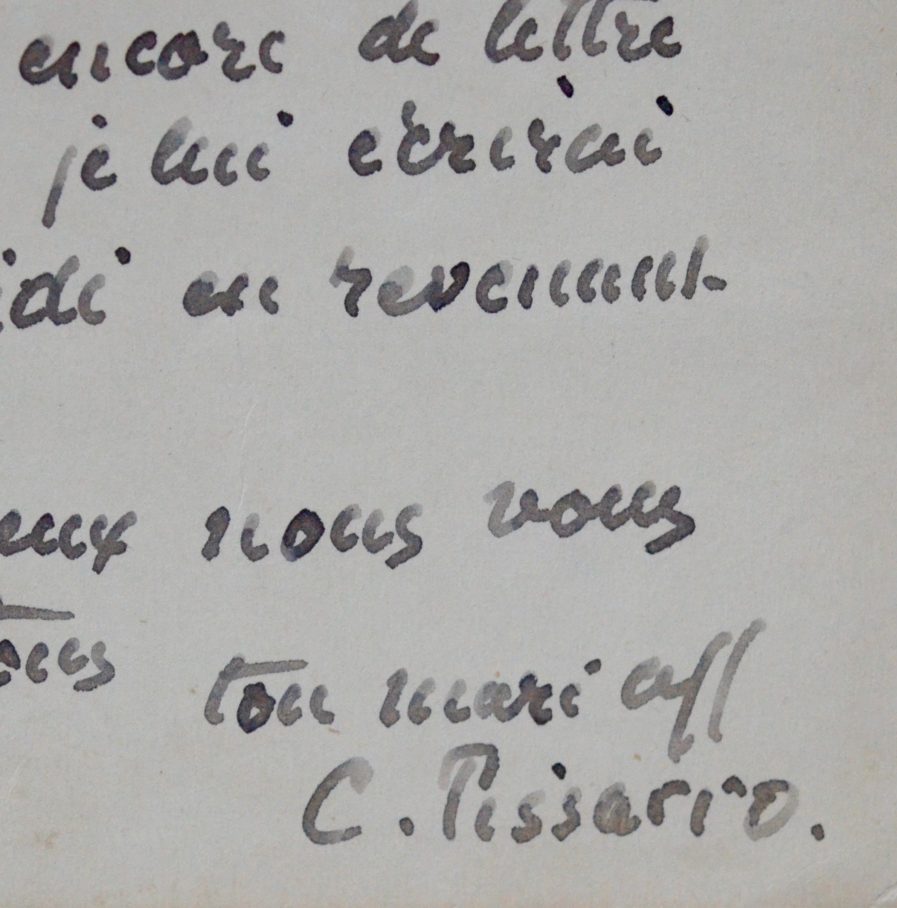 encore de lettre
je lui écrirai
idi en revenant
eux nous vous
ous
ton mari aff
C. Pissarro.